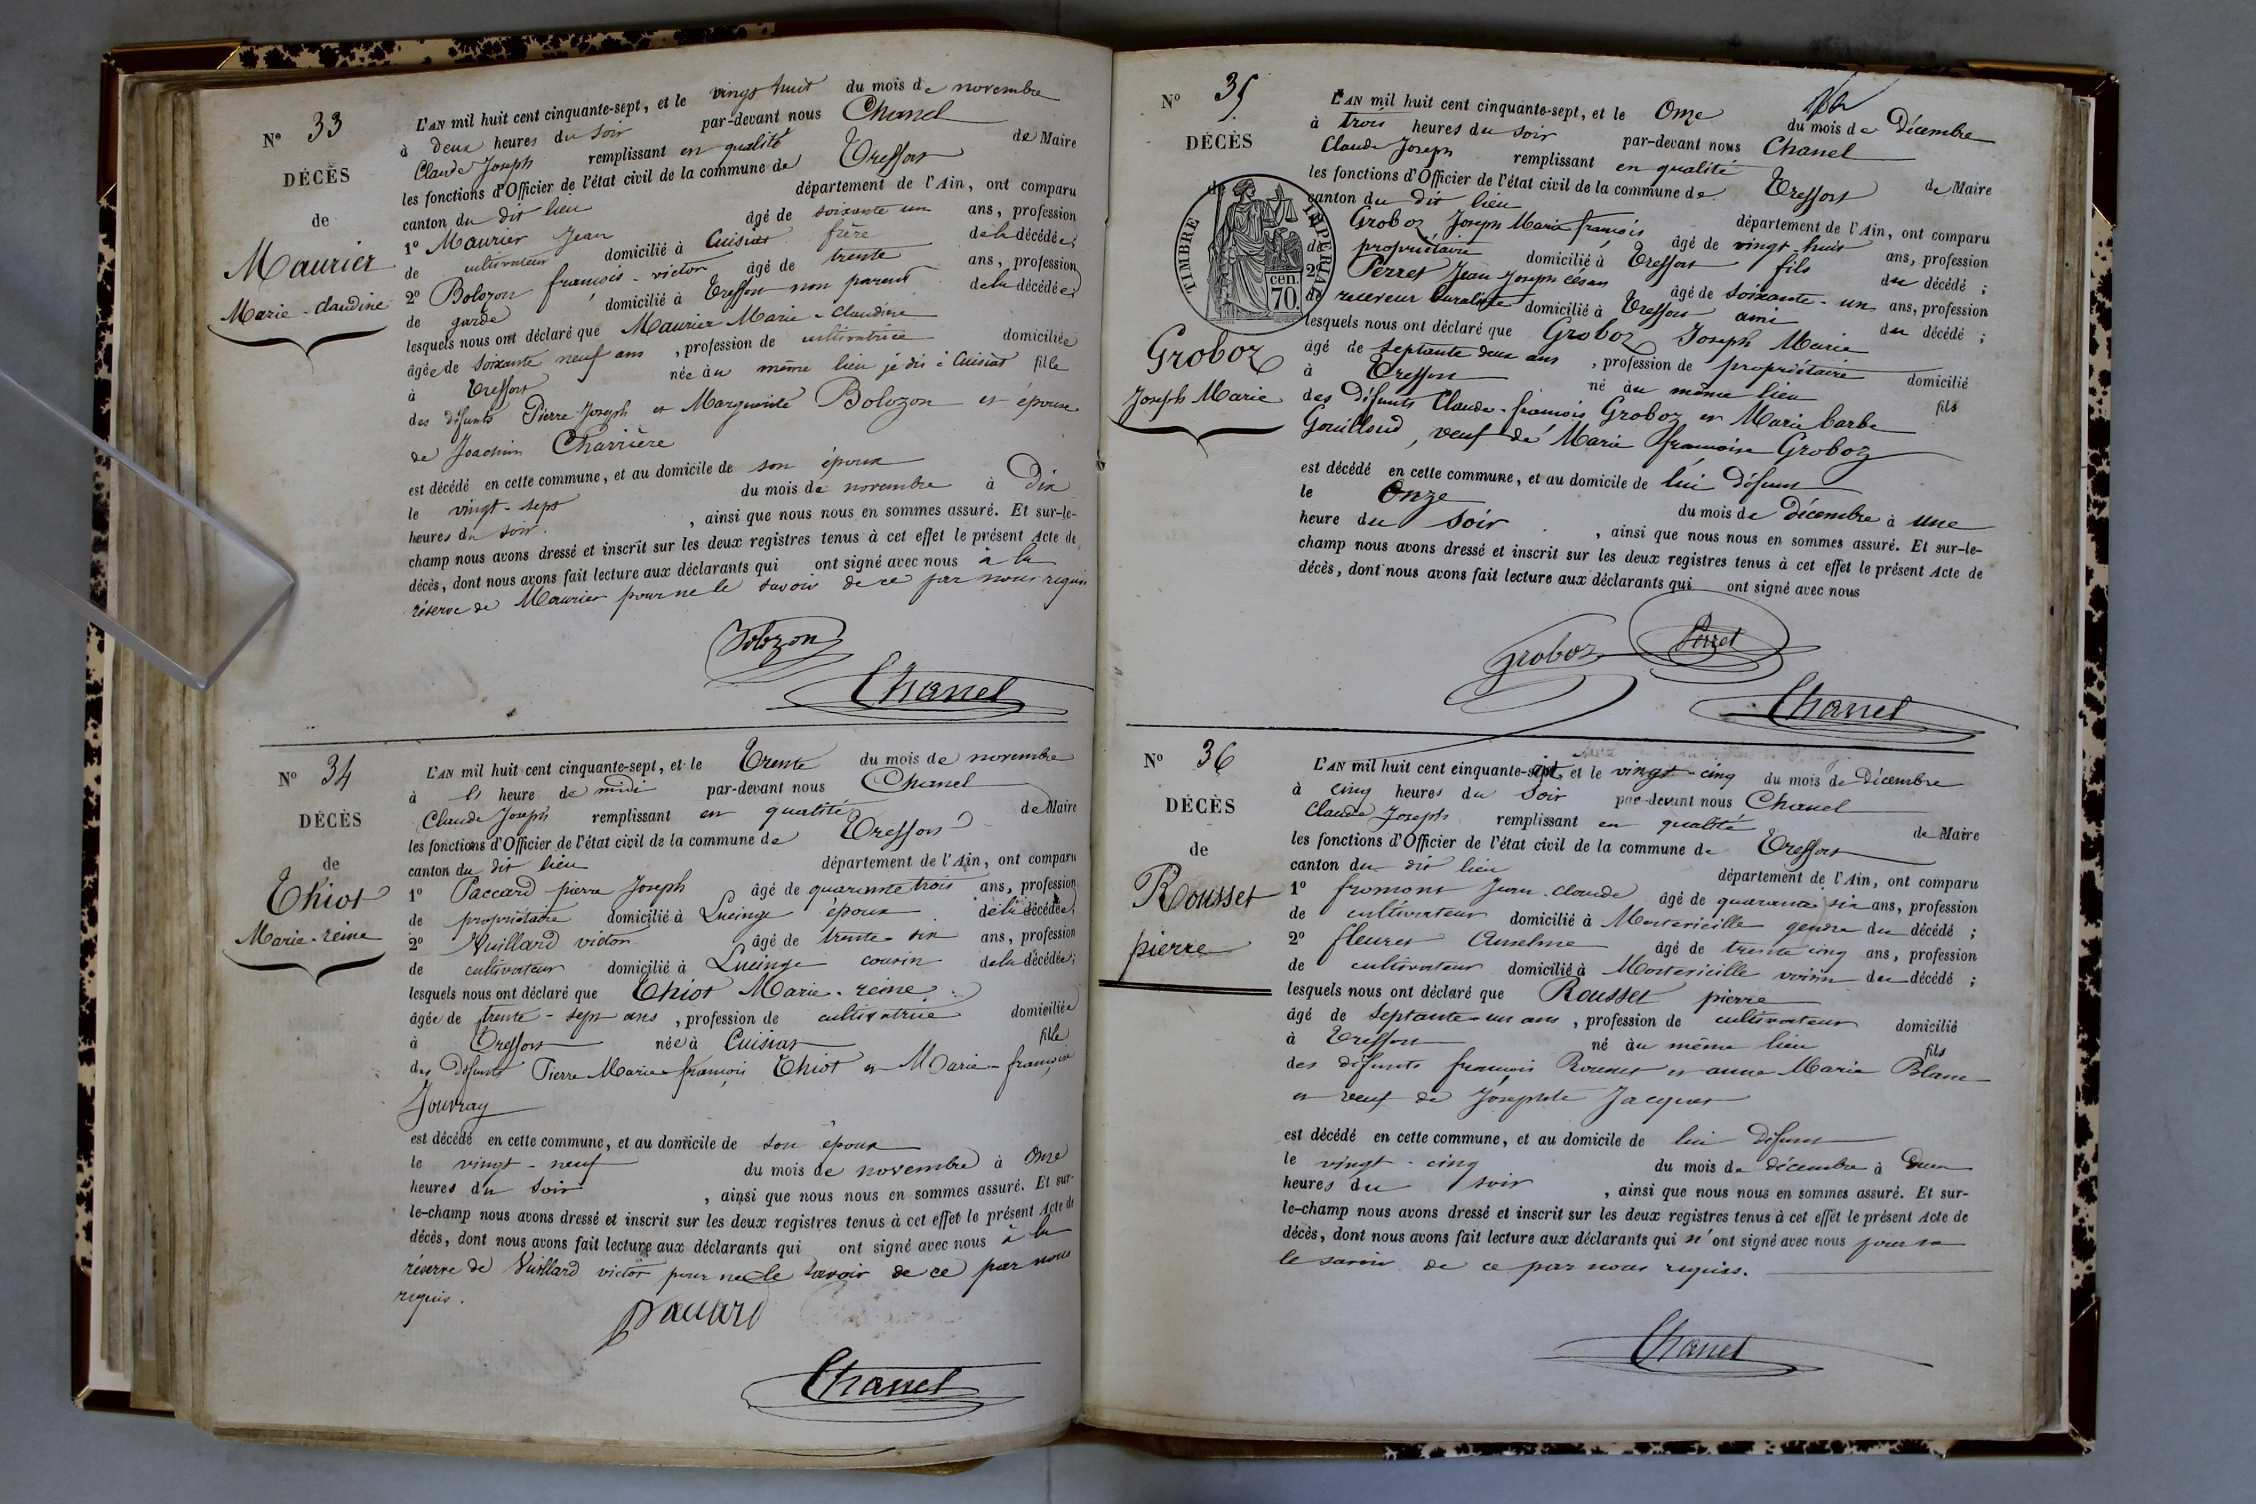 N° 33
DÉCÈS
de
Maurier
Marie-claudine
L'AN mil huit cent cinquante-sept, et le vingt huit du mois de novembre
à deux heures du soir par-devant nous Chanel
Claude Joseph remplissant en qualité de Maire
les fonctions d'Officier de l'état civil de la commune de Treffort
canton du dit lieu département de l'Ain, ont comparu
1° Maurier Jean âgé de soixante un ans, profession
de cultivateur domicilié à Cuisiat frère de la décédée;
2° Bolozon françois-victor âgé de trente ans, profession
de garde domicilié à Treffort non parent de la décédée;
lesquels nous ont déclaré que Maurier Marie-claudine
âgée de soixante neuf ans, profession de cultivatrice domiciliée
à Treffort née au même lieu je dis à Cuisiat fille
des défunts Pierre Joseph et Marguerite Bolozon et épouse
de Joachim Charrière
est décédé en cette commune, et au domicile de son époux
le vingt-sept du mois de novembre à Dix
heures du soir, ainsi que nous nous en sommes assuré. Et sur-le-
champ nous avons dressé et inscrit sur les deux registres tenus à cet effet le présent Acte de
décès, dont nous avons fait lecture aux déclarants qui ont signé avec nous à la
réserve de Maurier pour ne le savoir de ce par nous requis
Bolozon
Chanel
N° 34
DÉCÈS
de
Thiot
Marie-reine
L'AN mil huit cent cinquante-sept, et le Trente du mois de novembre
à heure de midi par-devant nous Chanel
Claude Joseph remplissant en qualité de Maire
les fonctions d'Officier de l'état civil de la commune de Treffort
canton du dit lieu département de l'Ain, ont comparu
1° Paccard pierre Joseph âgé de quarante trois ans, profession
de propriétaire domicilié à Lucinge époux de la décédée;
2° Vuillard victor âgé de trente-six ans, profession
de cultivateur domicilié à Lucinge cousin de la décédée;
lesquels nous ont déclaré que Thiot Marie-reine
âgée de trente-sept ans, profession de cultivatrice domiciliée
à Treffort née à Cuisiat fille
des défunts Pierre Marie françois Thiot et Marie-françoise
Jouvray
est décédé en cette commune, et au domicile de son époux
le vingt-neuf du mois de novembre à Onze
heures du soir, ainsi que nous nous en sommes assuré. Et sur-
le-champ nous avons dressé et inscrit sur les deux registres tenus à cet effet le présent Acte de
décès, dont nous avons fait lecture aux déclarants qui ont signé avec nous à la
réserve de Vuillard victor pour ne le savoir de ce par nous
requis.
Paccard
Chanel
N° 35
DÉCÈS
de
TIMBRE IMPERIAL
cen. 70.
Groboz
Joseph Marie
L'AN mil huit cent cinquante-sept, et le Onze du mois de Décembre
à trois heures du soir par-devant nous Chanel
Claude Joseph remplissant en qualité de Maire
les fonctions d'Officier de l'état civil de la commune de Treffort
canton du dit lieu département de l'Ain, ont comparu
Groboz Joseph Marie françois âgé de vingt-huit ans, profession
de propriétaire domicilié à Treffort fils du décédé;
2° Perret Jean Joseph césar âgé de soixante-un ans, profession
de receveur buraliste domicilié à Treffort ami du décédé;
lesquels nous ont déclaré que Groboz Joseph Marie
âgé de septante deux ans, profession de propriétaire domicilié
à Treffort né au même lieu fils
des défunts Claude-françois Groboz et Marie barbe
Gouilloud, veuf de Marie françoise Groboz
est décédé en cette commune, et au domicile de lui défunt
le Onze du mois de Décembre à une
heure du soir, ainsi que nous nous en sommes assuré. Et sur-le-
champ nous avons dressé et inscrit sur les deux registres tenus à cet effet le présent Acte de
décès, dont nous avons fait lecture aux déclarants qui ont signé avec nous
Groboz Perret
Chanel
N° 36
DÉCÈS
de
Rousset
pierre
L'AN mil huit cent cinquante-sept, et le vingt-cinq du mois de Décembre
à cinq heures du soir par-devant nous Chanel
Claude Joseph remplissant en qualité de Maire
les fonctions d'Officier de l'état civil de la commune de Treffort
canton du dit lieu département de l'Ain, ont comparu
1° fromont Jean-claude âgé de quarante six ans, profession
de cultivateur domicilié à gendre du décédé;
2° fleuret Anselme âgé de trente cinq ans, profession
de cultivateur domicilié à voisin du décédé;
lesquels nous ont déclaré que Rousset pierre
âgé de septante-un ans, profession de cultivateur domicilié
à Treffort né au même lieu fils
des défunts françois Rousset et anne Marie Blanc
et veuf de Josephte Jacquet
est décédé en cette commune, et au domicile de lui défunt
le vingt-cinq du mois de décembre à Deux
heures du soir, ainsi que nous nous en sommes assuré. Et sur-
le-champ nous avons dressé et inscrit sur les deux registres tenus à cet effet le présent Acte de
décès, dont nous avons fait lecture aux déclarants qui n'ont signé avec nous pour ne
le savoir de ce par nous requis.
Chanel